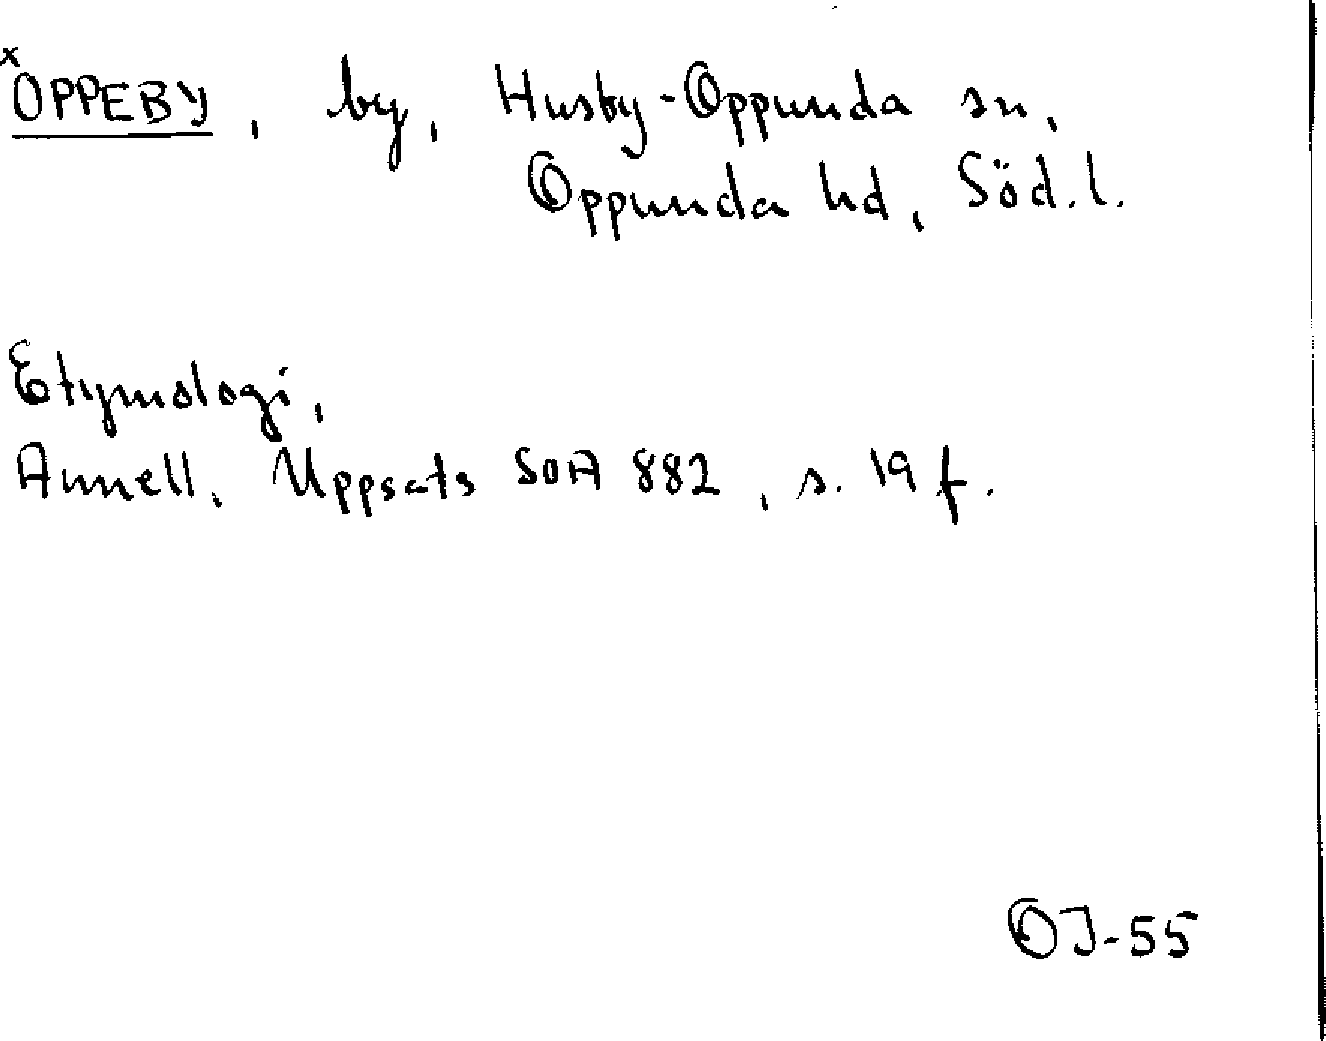 x OPPEBY, by, Husby-Oppunda sn,
Oppunda hd, Söd.l.
Etymologi,
Annell, Uppsats SOA 882, s. 19 f.
OJ-55